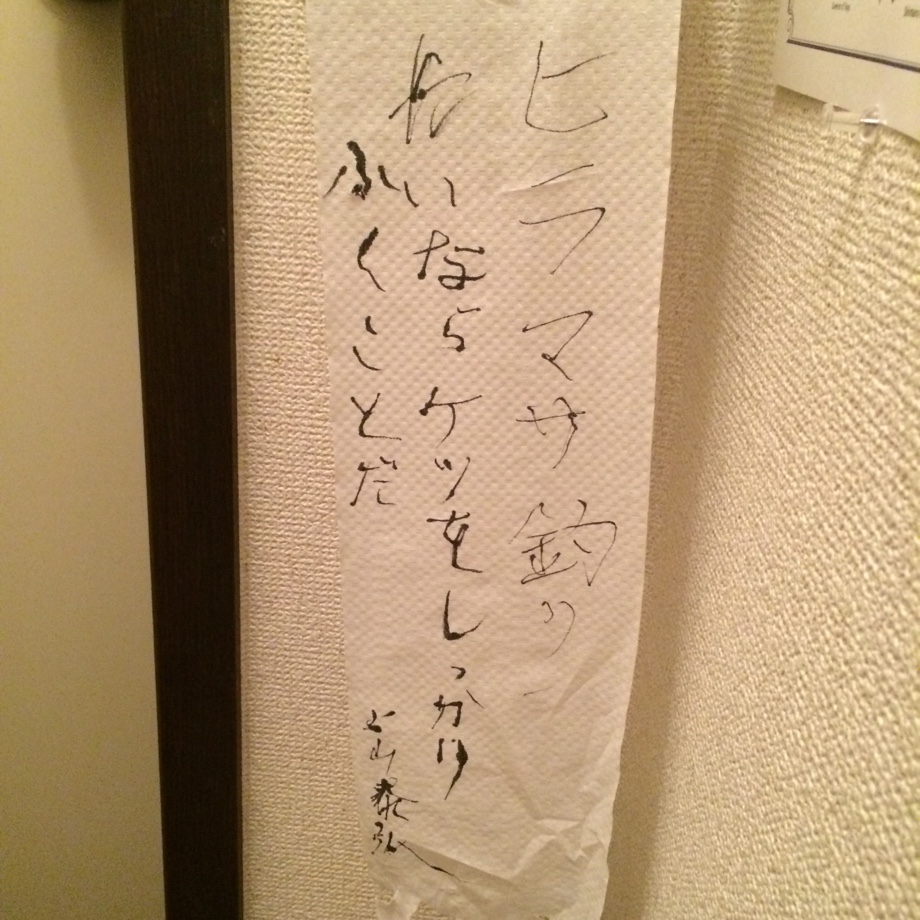 ヒラマサ釣り
たいならケツをしっかり
ふくことだ
上山泰弘